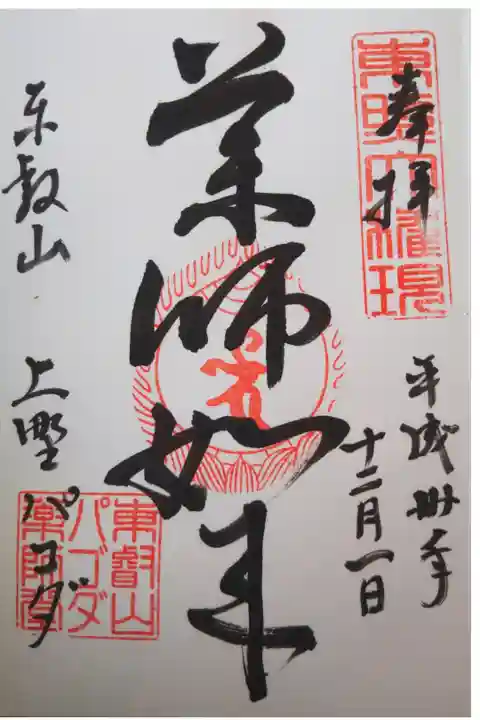 奉拝
東照大権現
平成卅年
十二月一日
薬師如来
東叡山 上野パゴダ
東叡山
パゴダ
薬師堂